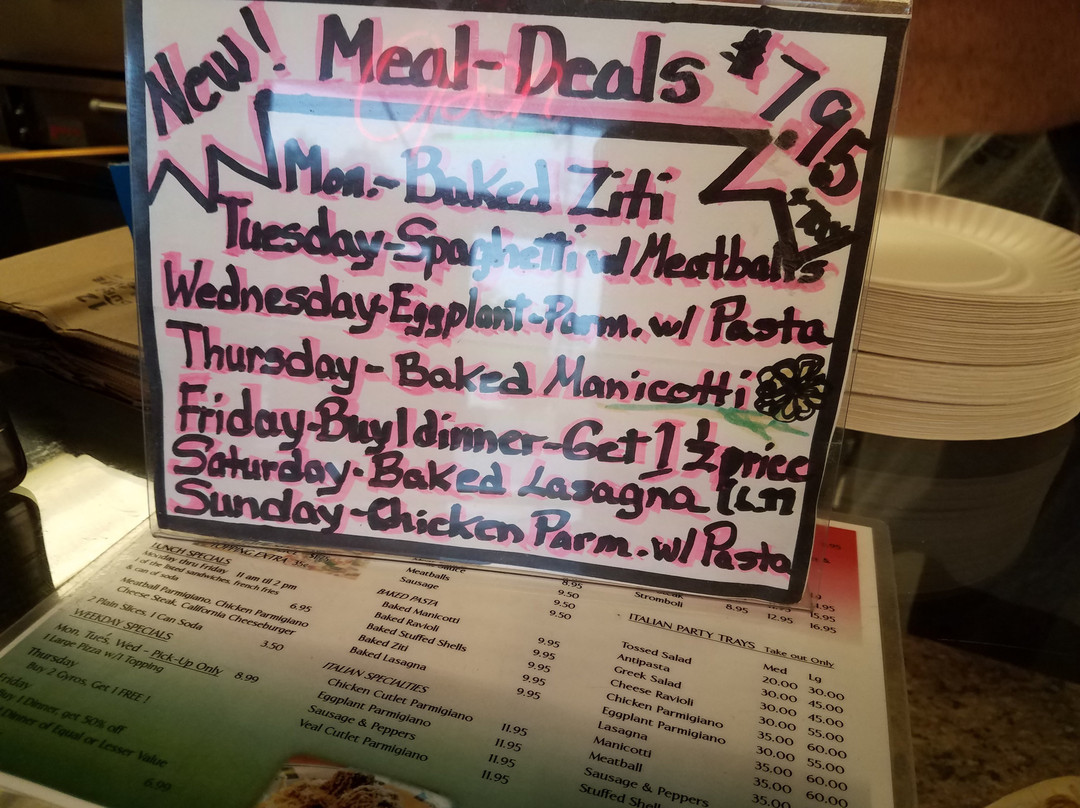 New! Meal-Deals $7.95
Mon.- Baked Ziti
Tuesday-Spaghetti w/ Meatballs
Wednesday-Eggplant-Parm. w/ Pasta
Thursday- Baked Manicotti
Friday-Buy 1 dinner-Get 1 ½ price
Saturday- Baked Lasagna
Sunday-Chicken Parm. w/ Pasta
LUNCH SPECIALS
Monday thru Friday 11 am til 2 pm
of the listed sandwiches, french fries
& can of soda
Meatball Parmigiano, Chicken Parmigiano
Cheese Steak, California Cheeseburger
6.95
2 Plain Slices, 1 Can Soda 3.50
WEEKDAY SPECIALS
Mon, Tues, Wed - Pick-Up Only
1 Large Pizza w/1 Topping 8.99
Thursday
Buy 2 Gyros, Get 1 FREE!
Friday
Buy 1 Dinner, get 50% off
Dinner of Equal or Lesser Value
6.99
TOPPING EXTRA
Meatballs 8.95
Sausage 9.50
9.50
9.50
BAKED PASTA
Baked Manicotti 9.95
Baked Ravioli 9.95
Baked Stuffed Shells 9.95
Baked Ziti 9.95
Baked Lasagna 9.95
ITALIAN SPECIALTIES
Chicken Cutlet Parmigiano 11.95
Eggplant Parmigiano 11.95
Sausage & Peppers 11.95
Veal Cutlet Parmigiano 11.95
Stromboli 8.95 12.95 16.95
Lg
15.95
ITALIAN PARTY TRAYS Take out Only
Med Lg
Tossed Salad 20.00 30.00
Antipasta 30.00 45.00
Greek Salad 30.00 45.00
Cheese Ravioli 30.00 55.00
Chicken Parmigiano 35.00 60.00
Eggplant Parmigiano 30.00 55.00
Lasagna 35.00 60.00
Manicotti 35.00 60.00
Meatball 35.00
Sausage & Peppers
Stuffed Shell